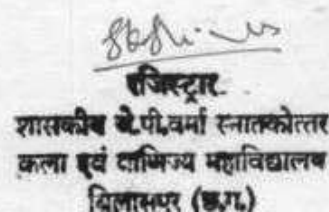 रजिस्ट्रार
शासकीय जे.पी.वर्मा स्नातकोत्तर
कला एवं वाणिज्य महाविद्यालय
बिलासपुर (छ.ग.)